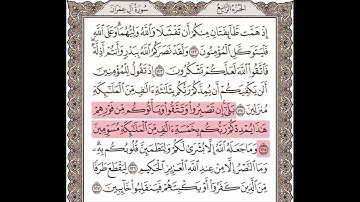 الجزء الرابع سورة آل عمران
إِذْ هَمَّت طَّآئِفَتَانِ مِنكُمْ أَن تَفْشَلَا وَٱللَّهُ وَلِيُّهُمَا ۗ وَعَلَى ٱللَّهِ
فَلْيَتَوَكَّلِ ٱلْمُؤْمِنُونَ ١٢٢ وَلَقَدْ نَصَرَكُمُ ٱللَّهُ بِبَدْرٍ وَأَنتُمْ أَذِلَّةٌ ۖ
فَٱتَّقُوا۟ ٱللَّهَ لَعَلَّكُمْ تَشْكُرُونَ ١٢٣ إِذْ تَقُولُ لِلْمُؤْمِنِينَ
أَلَن يَكْفِيَكُمْ أَن يُمِدَّكُمْ رَبُّكُم بِثَلَـٰثَةِ ءَالَـٰفٍ مِّنَ ٱلْمَلَـٰٓئِكَةِ
مُنزَلِينَ ١٢٤ بَلَىٰٓ ۚ إِن تَصْبِرُوا۟ وَتَتَّقُوا۟ وَيَأْتُوكُم مِّن فَوْرِهِمْ
هَـٰذَا يُمْدِدْكُمْ رَبُّكُم بِخَمْسَةِ ءَالَـٰفٍ مِّنَ ٱلْمَلَـٰٓئِكَةِ مُسَوِّمِينَ
١٢٥ وَمَا جَعَلَهُ ٱللَّهُ إِلَّا بُشْرَىٰ لَكُمْ وَلِتَطْمَئِنَّ قُلُوبُكُم بِهِۦ ۗ
وَمَا ٱلنَّصْرُ إِلَّا مِنْ عِندِ ٱللَّهِ ٱلْعَزِيزِ ٱلْحَكِيمِ ١٢٦ لِيَقْطَعَ طَرَفًا
مِّنَ ٱلَّذِينَ كَفَرُوٓا۟ أَوْ يَكْبِتَهُمْ فَيَنقَلِبُوا۟ خَآئِبِينَ ١٢٧